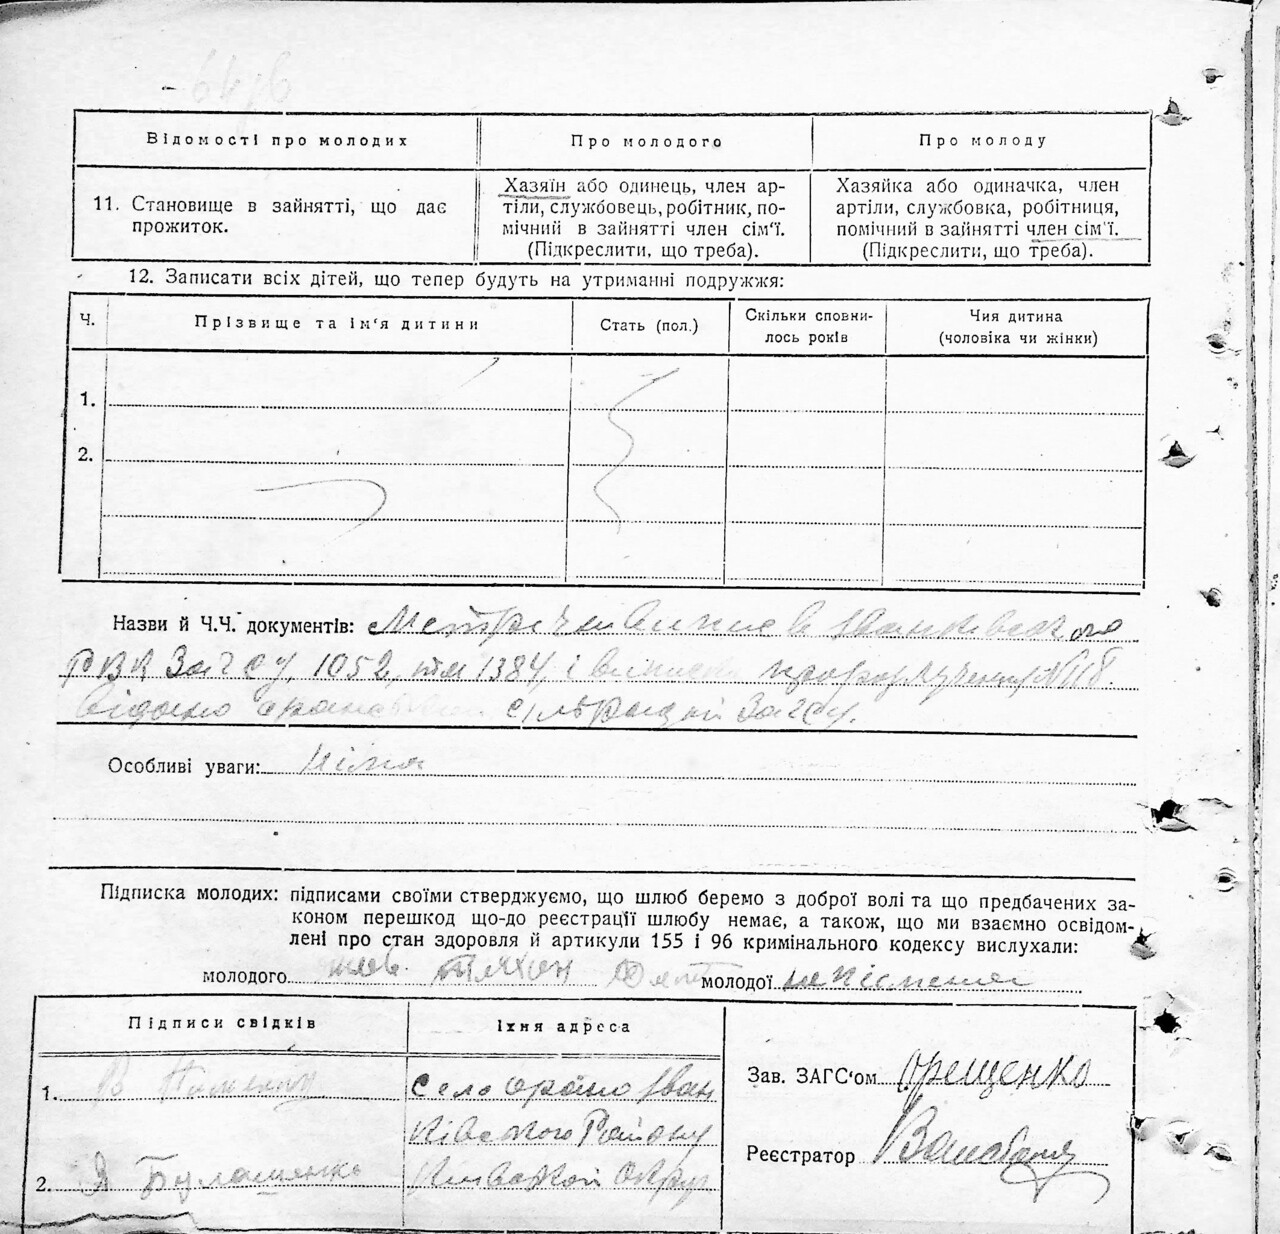 Відомості про молодих Про молодого Про молоду
11. Становище в зайнятті, що дає прожиток.
Хазяїн або одинець, член ар-
тіли, службовець, робітник, по-
мічний в зайнятті член сім'ї.
(Підкреслити, що треба).
Хазяйка або одиначка, член
артіли, службовка, робітниця,
помічний в зайнятті член сім'ї.
(Підкреслити, що треба).
12. Записати всіх дітей, що тепер будуть на утриманні подружжя:
Ч. Прізвище та ім'я дитини Стать (пол.) Скільки сповни-
лось років Чия дитина
(чоловіка чи жінки)
1.
2.
Назви й Ч.Ч. документів:
РВК Загсу, 1052, 1384, і
сільрадой Загсу.
Особливі уваги: Нима
Підписка молодих: підписами своїми стверджуємо, що шлюб беремо з доброї волі та що предбачених за-
коном перешкод що-до реєстрації шлюбу немає, а також, що ми взаємно освідом-
лені про стан здоровля й артикули 155 і 96 кримінального кодексу вислухали:
молодого молодої
Підписи свідків Їхня адреса
1. село Орано Іван
ківського Району
2. Я Булашенко
Зав. ЗАГС'ом Орещенко
Реєстратор